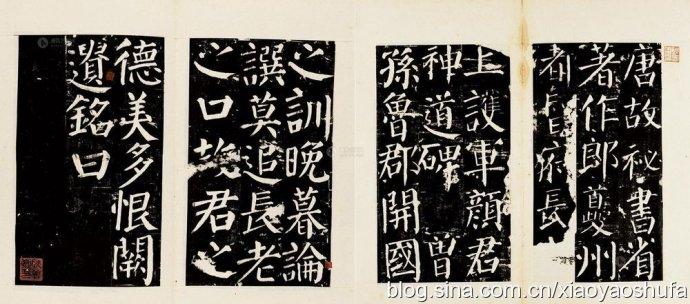 唐故祕書省
著作郎夔州
都督府長
上護軍顏君
神道碑 曾
孫魯郡開國
之訓晚暮論
譔莫追長老
之口故君之
德美多恨闕
遺銘曰
blog.sina.com.cn/xiaoyaoshufa